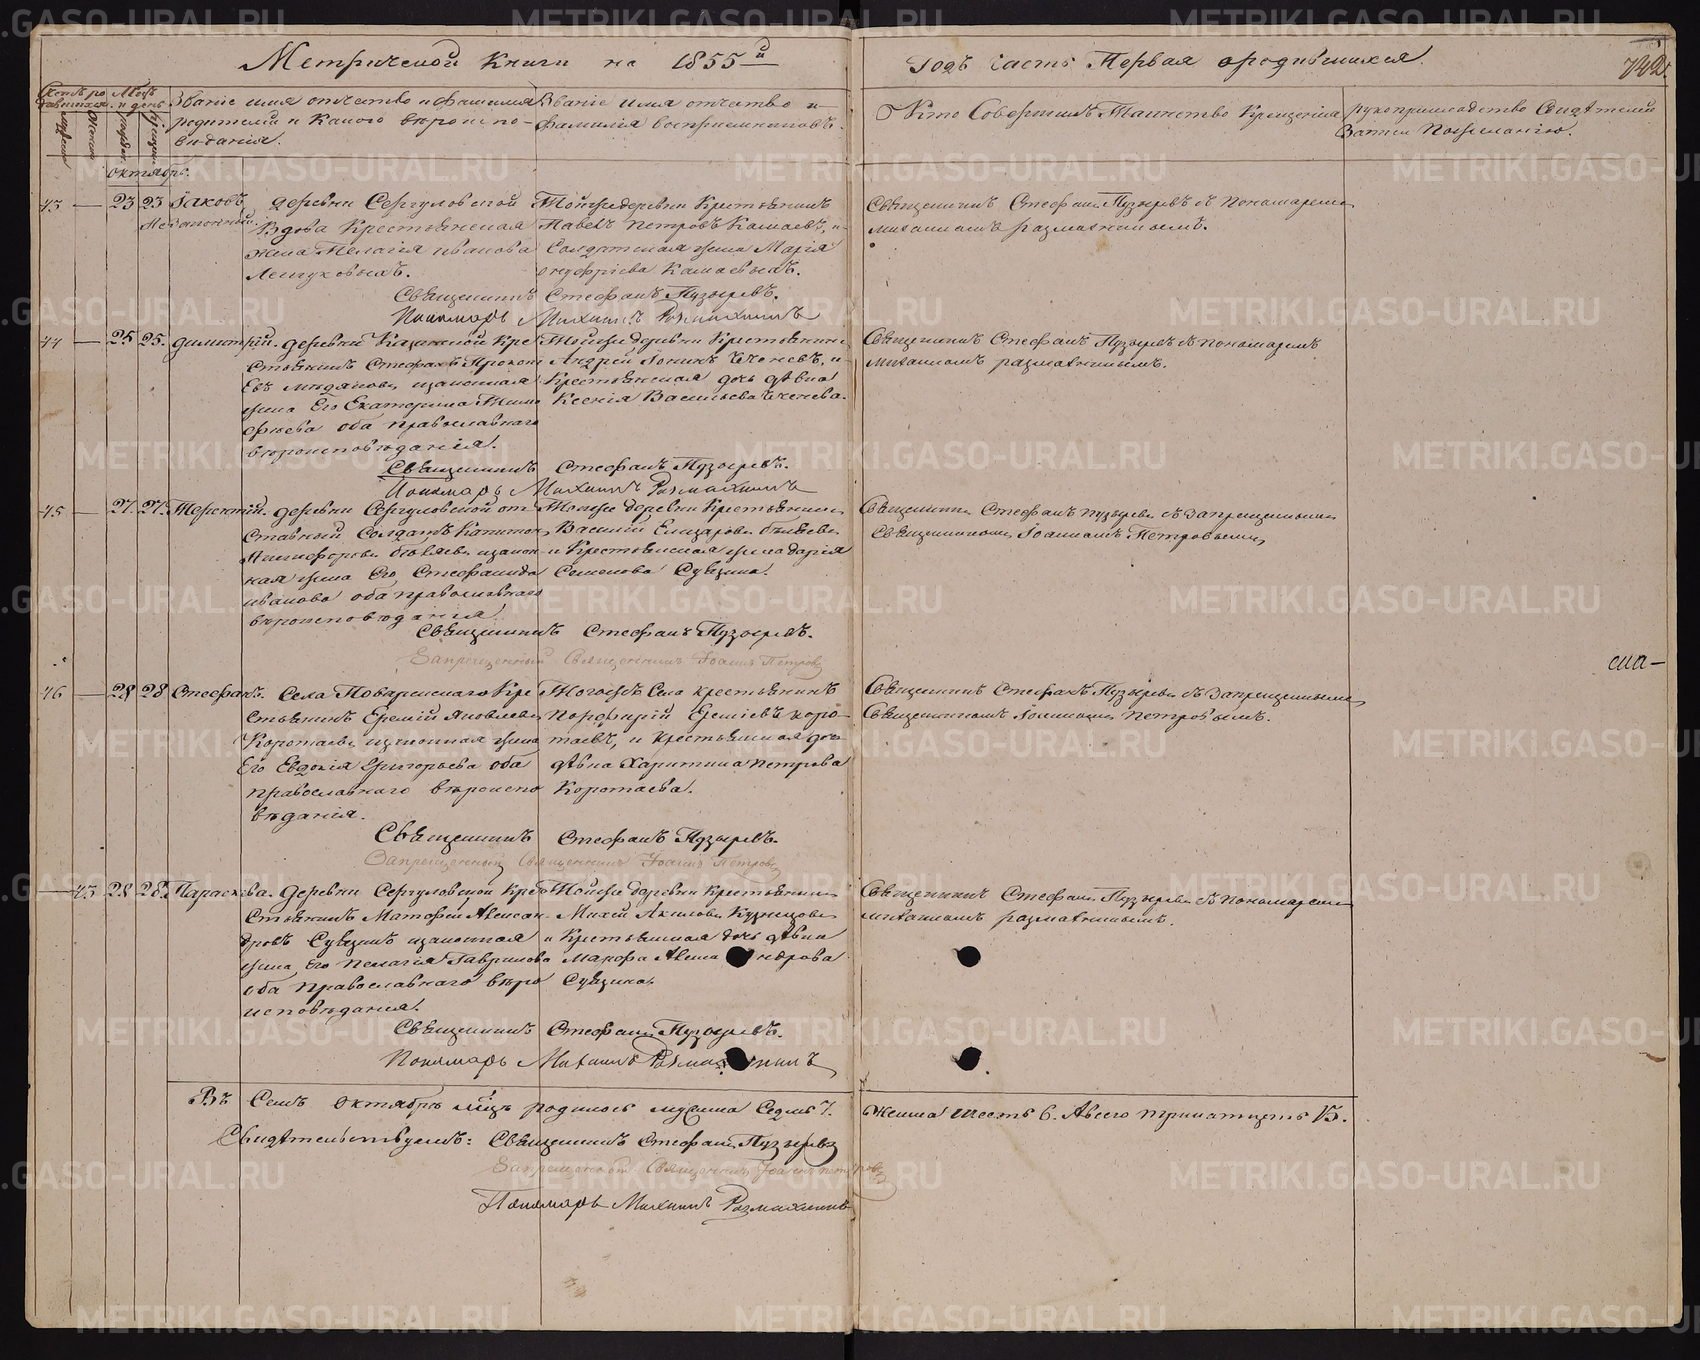 Метрической Книги на 1855й
Годъ Часть Первая о родившихся.
742.
Званіе имя отчество и фамилія
родителей и Какого вѣроиспо-
вѣданія.
Званіе имя отчество и
фамилія воспріемниковъ.
Кто Совершалъ Таинство Крещенія
рукоприкладство Свидѣтелей
Записи По желанію.
октябрь.
43 — 23 23 Іаковъ, деревни Сергуловской
Незаконный.
Вдова Крестьянская
жена Пелагія иванова
Той же деревни Крестьянинъ
Павелъ Петровъ Камаевъ, и
Солдатская жена Марія
онуфріева Камаевыхъ.
Священникъ Стефанъ Пузыревъ съ пономаремъ
михаиломъ размахнинымъ.
Священникъ Стефанъ Пузыревъ.
Пономарь Михаилъ Размахнинъ
44 — 25 25. димитрій. деревни Казинской Кре
стьянинъ Стефанъ Прокопі
евъ законная
жена Его Екатерина Тимо
фѣева оба православнаго
вѣроисповѣданія.
Той же деревни Крестьянинъ
Андрей Чеченевъ, и
Крестьянская дочь дѣвка
Ксенія Васильева Чеченева.
Священникъ Стефанъ Пузыревъ съ пономаремъ
михаиломъ размахнинымъ.
Священникъ Стефанъ Пузыревъ.
Пономарь Михаилъ Размахнинъ
45 — 27 27. Терентій. деревни Сергуловской от
ставный Солдатъ Капитонъ
Никифоровъ закон
ная жена Его Стефанида
иванова оба православнаго
вѣроисповѣданія.
Той же деревни Крестьянинъ
Василій Елизаровъ
и Крестьянская жена дарія
Семенова Сувзина.
Священникъ Стефанъ пузыревъ съ запрещеннымъ
Священникомъ Іоанномъ Петровымъ,
Священникъ Стефанъ Пузыревъ.
Запрещенный Священникъ Іоаннъ Петровъ
сна-
46 — 28 28 Стефанъ. Села Покровскаго Кре
стьянинъ Еремій Яковлевъ
Коротаевъ законная жена
Его Евдокія Григорьева оба
православнаго вѣроиспо
вѣданія.
Того же Села крестьянинъ
Порфирій Ереміевъ коро-
таевъ, и крестьянская дочь
дѣвка Харитина петрова
Коротаева.
Священникъ Стефанъ Пузыревъ съ запрещеннымъ
Священникомъ Іоанномъ петровымъ.
Священникъ Стефанъ Пузыревъ.
Запрещенный Священникъ Іоаннъ Петровъ
— 43 28 28. Параскева. деревни Сергуловской Кре
стьянинъ Матфей Алексан-
дровъ Сувзинъ законная
жена Его пелагія Гаврилова
оба православнаго вѣро
исповѣданія.
Той же деревни крестьянинъ
Михей Акиловъ Кузнецовъ
и Крестьянская дочь дѣвка
Макофа Александрова
Сувзина.
Священникъ Стефанъ Пузыревъ съ пономаремъ
михаиломъ размахнинымъ.
Священникъ Стефанъ Пузыревъ.
Пономарь Михаилъ Размахнинъ
Въ Семъ октябрѣ мцѣ родилось мужска Седмь 7.
Женска шесть 6. А всего тринатцать 13.
Свидѣтельствуемъ: Священникъ Стефанъ Пузыревъ
Запрещенный Священникъ Іоаннъ петровъ
Пономарь Михаилъ Размахнинъ
METRIKI.GASO-URAL.RU